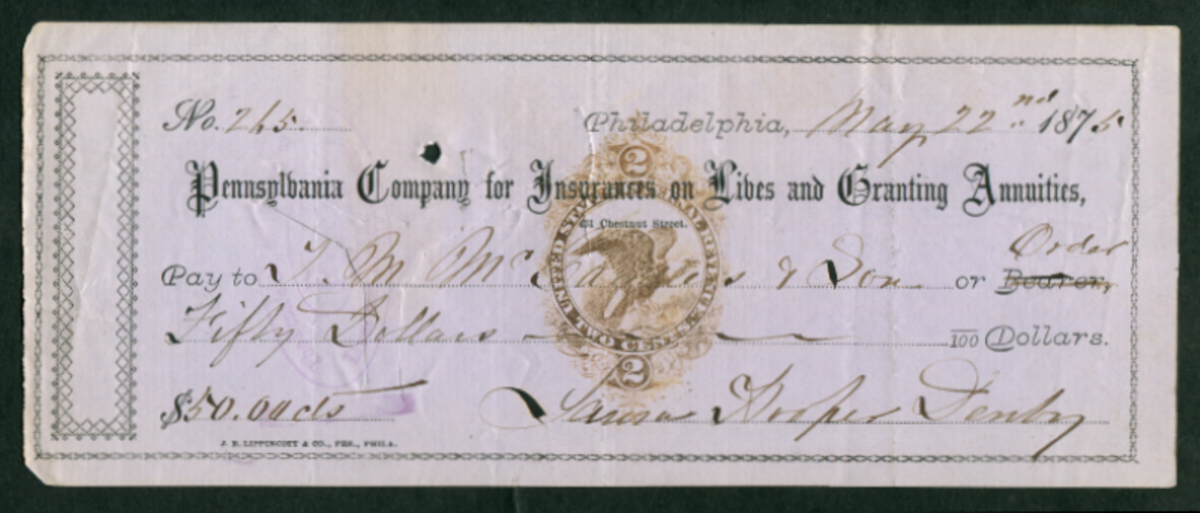 No. 265. Philadelphia, May 22nd 1875
Pennsylvania Company for Insurances on Lives and Granting Annuities,
431 Chestnut Street.
Order
Pay to T. M. & Son or Bearer,
Fifty Dollars 100 Dollars.
$50.00cts Hooper
J. B. LIPPINCOTT & CO., PHILA.
2
UNITED STATES INTERNAL REVENUE
TWO CENTS
2